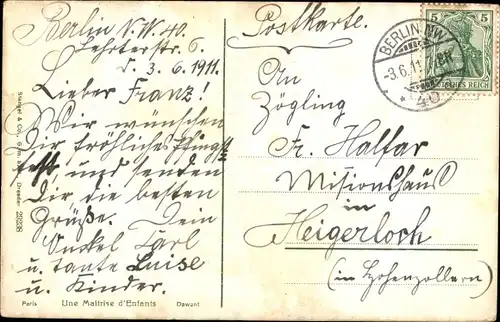 Berlin N.W. 40.
Lehrterstr. 6.
d. 3. 6. 1911.
Lieber Franz!
Wir wünschen
Dir fröhliches Pfingst=
fest, und senden
Dir die besten
Grüße. Dein
Onckel Carl
u. tante Luise
u. Kinder.
Stengel & Co., G.m.b.H., Dresden 29238
Paris Une Maîtrise d'Enfants Dawant
Postkarte.
BERLIN NW
-3.6.11.
* 40 *
5 5
DEUTSCHES REICH
An
Zögling
Fr. Halfar
Misionshaus
in
Heigerloch
(in Hohenzollern)